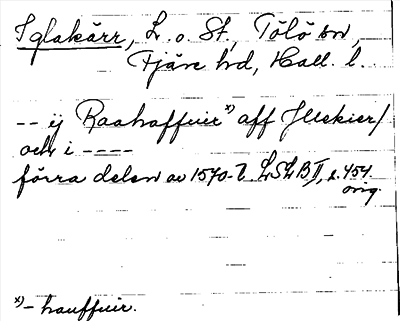 Iglakärr, L. o. St., Tölö sn,
Fjäre hd, Hall. l.
-- ij Raahaffuir x) aff Jllekier/
och i ----
förra delen av 1570-t. LSLB II, s. 454
orig.
x) - hauffuir.